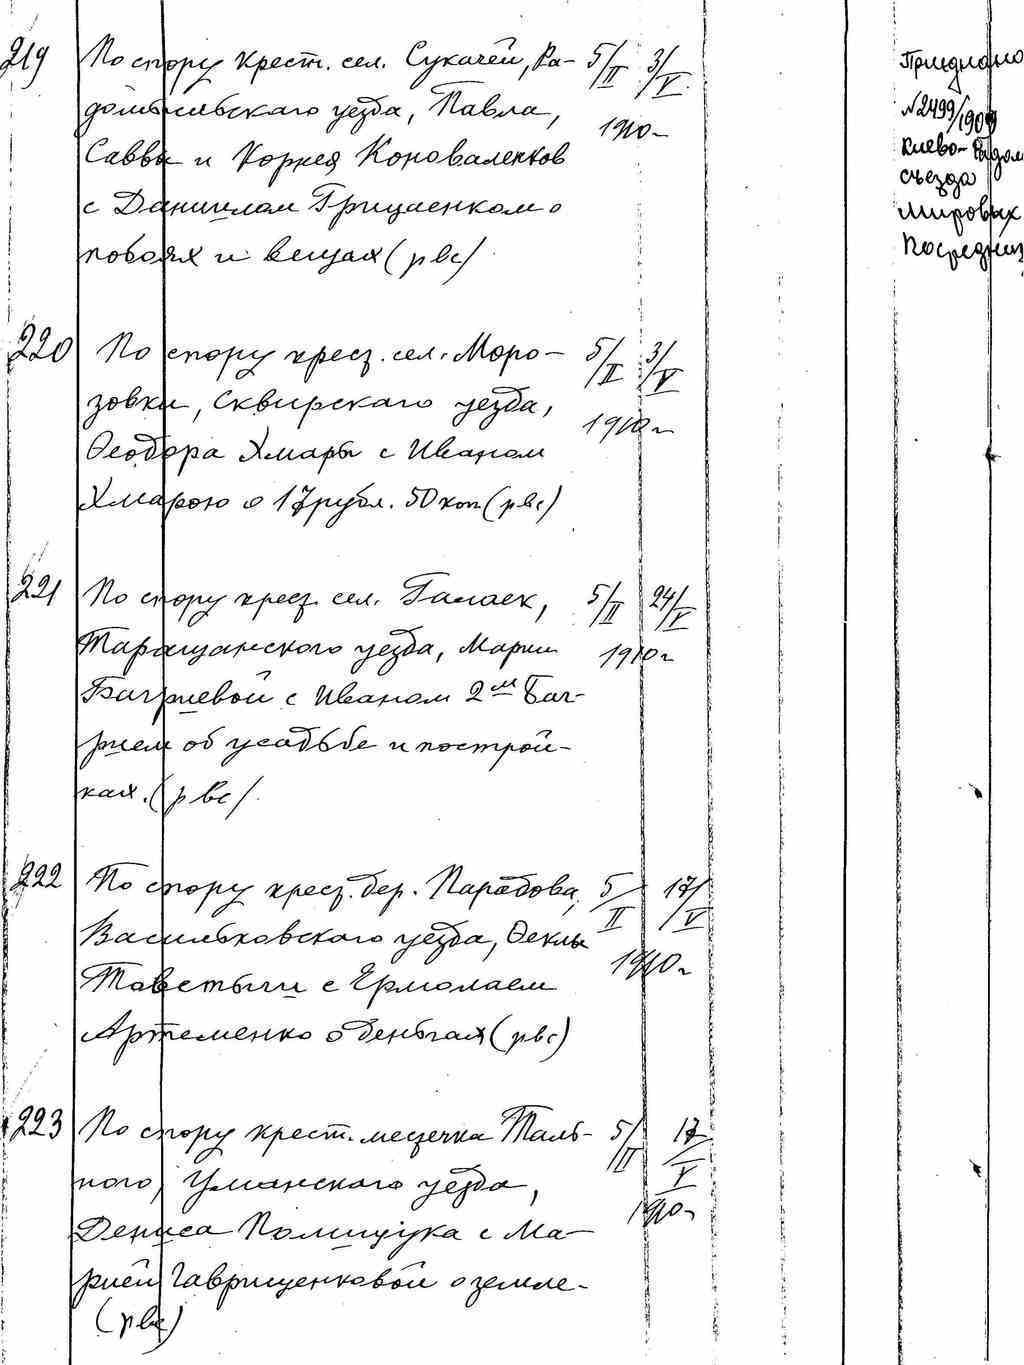 219 По спору крест. сел. Сукачей, Ра- 5/II 3/V
домысльскаго уезда, Павла, 1910 г
Саввы и Корнея Коноваленков
с Даниилом Грицаенком о
побоях и вещах (рвс)
Приедиано
№2499/1909
Киево-Радом
съезда
Мировых
Посредник
220 По спору крест. сел. Моро- 5/II 3/V
зовки, Сквирскаго уезда, 1910 г
Феодора Хмары с Иваном
Хмарою о 17 рубл. 50 коп (рвс)
221 По спору крест. сел. Галаек, 5/II 24/V
Таращанского уезда, Марии 1910 г
Багриевой с Иваном 2м Баг-
рием об усадьбе и построй-
ках. (рвс)
222 По спору крест. дер. 5/II 17/V
Васильковского уезда, Феклы 1910 г
с Ермолаем
Артеменко о деньгах (рвс)
223 По спору крест. местечка Таль- 5/II 17/V
ного, Уманскаго уезда, 1910 г
Дениса Полищука с Ма-
рией Гаврищенковой о земле-
(рвс)